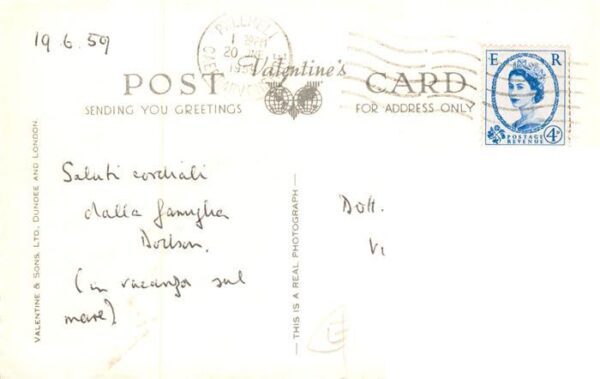 19.6.59
PWLLHELI
1 PM
20 JNE
1959
CAERNARVONSHIRE
Valentine's
POST CARD
SENDING YOU GREETINGS
FOR ADDRESS ONLY
E R
POSTAGE
REVENUE
4D
Saluti cordiali
dalla famiglia
Dodson.
(in vacanza sul
mare)
Dott.
Vi
— THIS IS A REAL PHOTOGRAPH —
VALENTINE & SONS, LTD., DUNDEE AND LONDON.